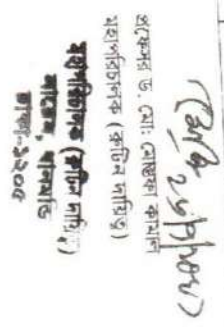 প্রফেসর ড. মো: মোস্তফা কামাল
মহাপরিচালক (রুটিন দায়িত্ব)
মহাপরিচালক (রুটিন দায়িত্ব)
নায়েম, ধানমন্ডি
ঢাকা-১২০৫